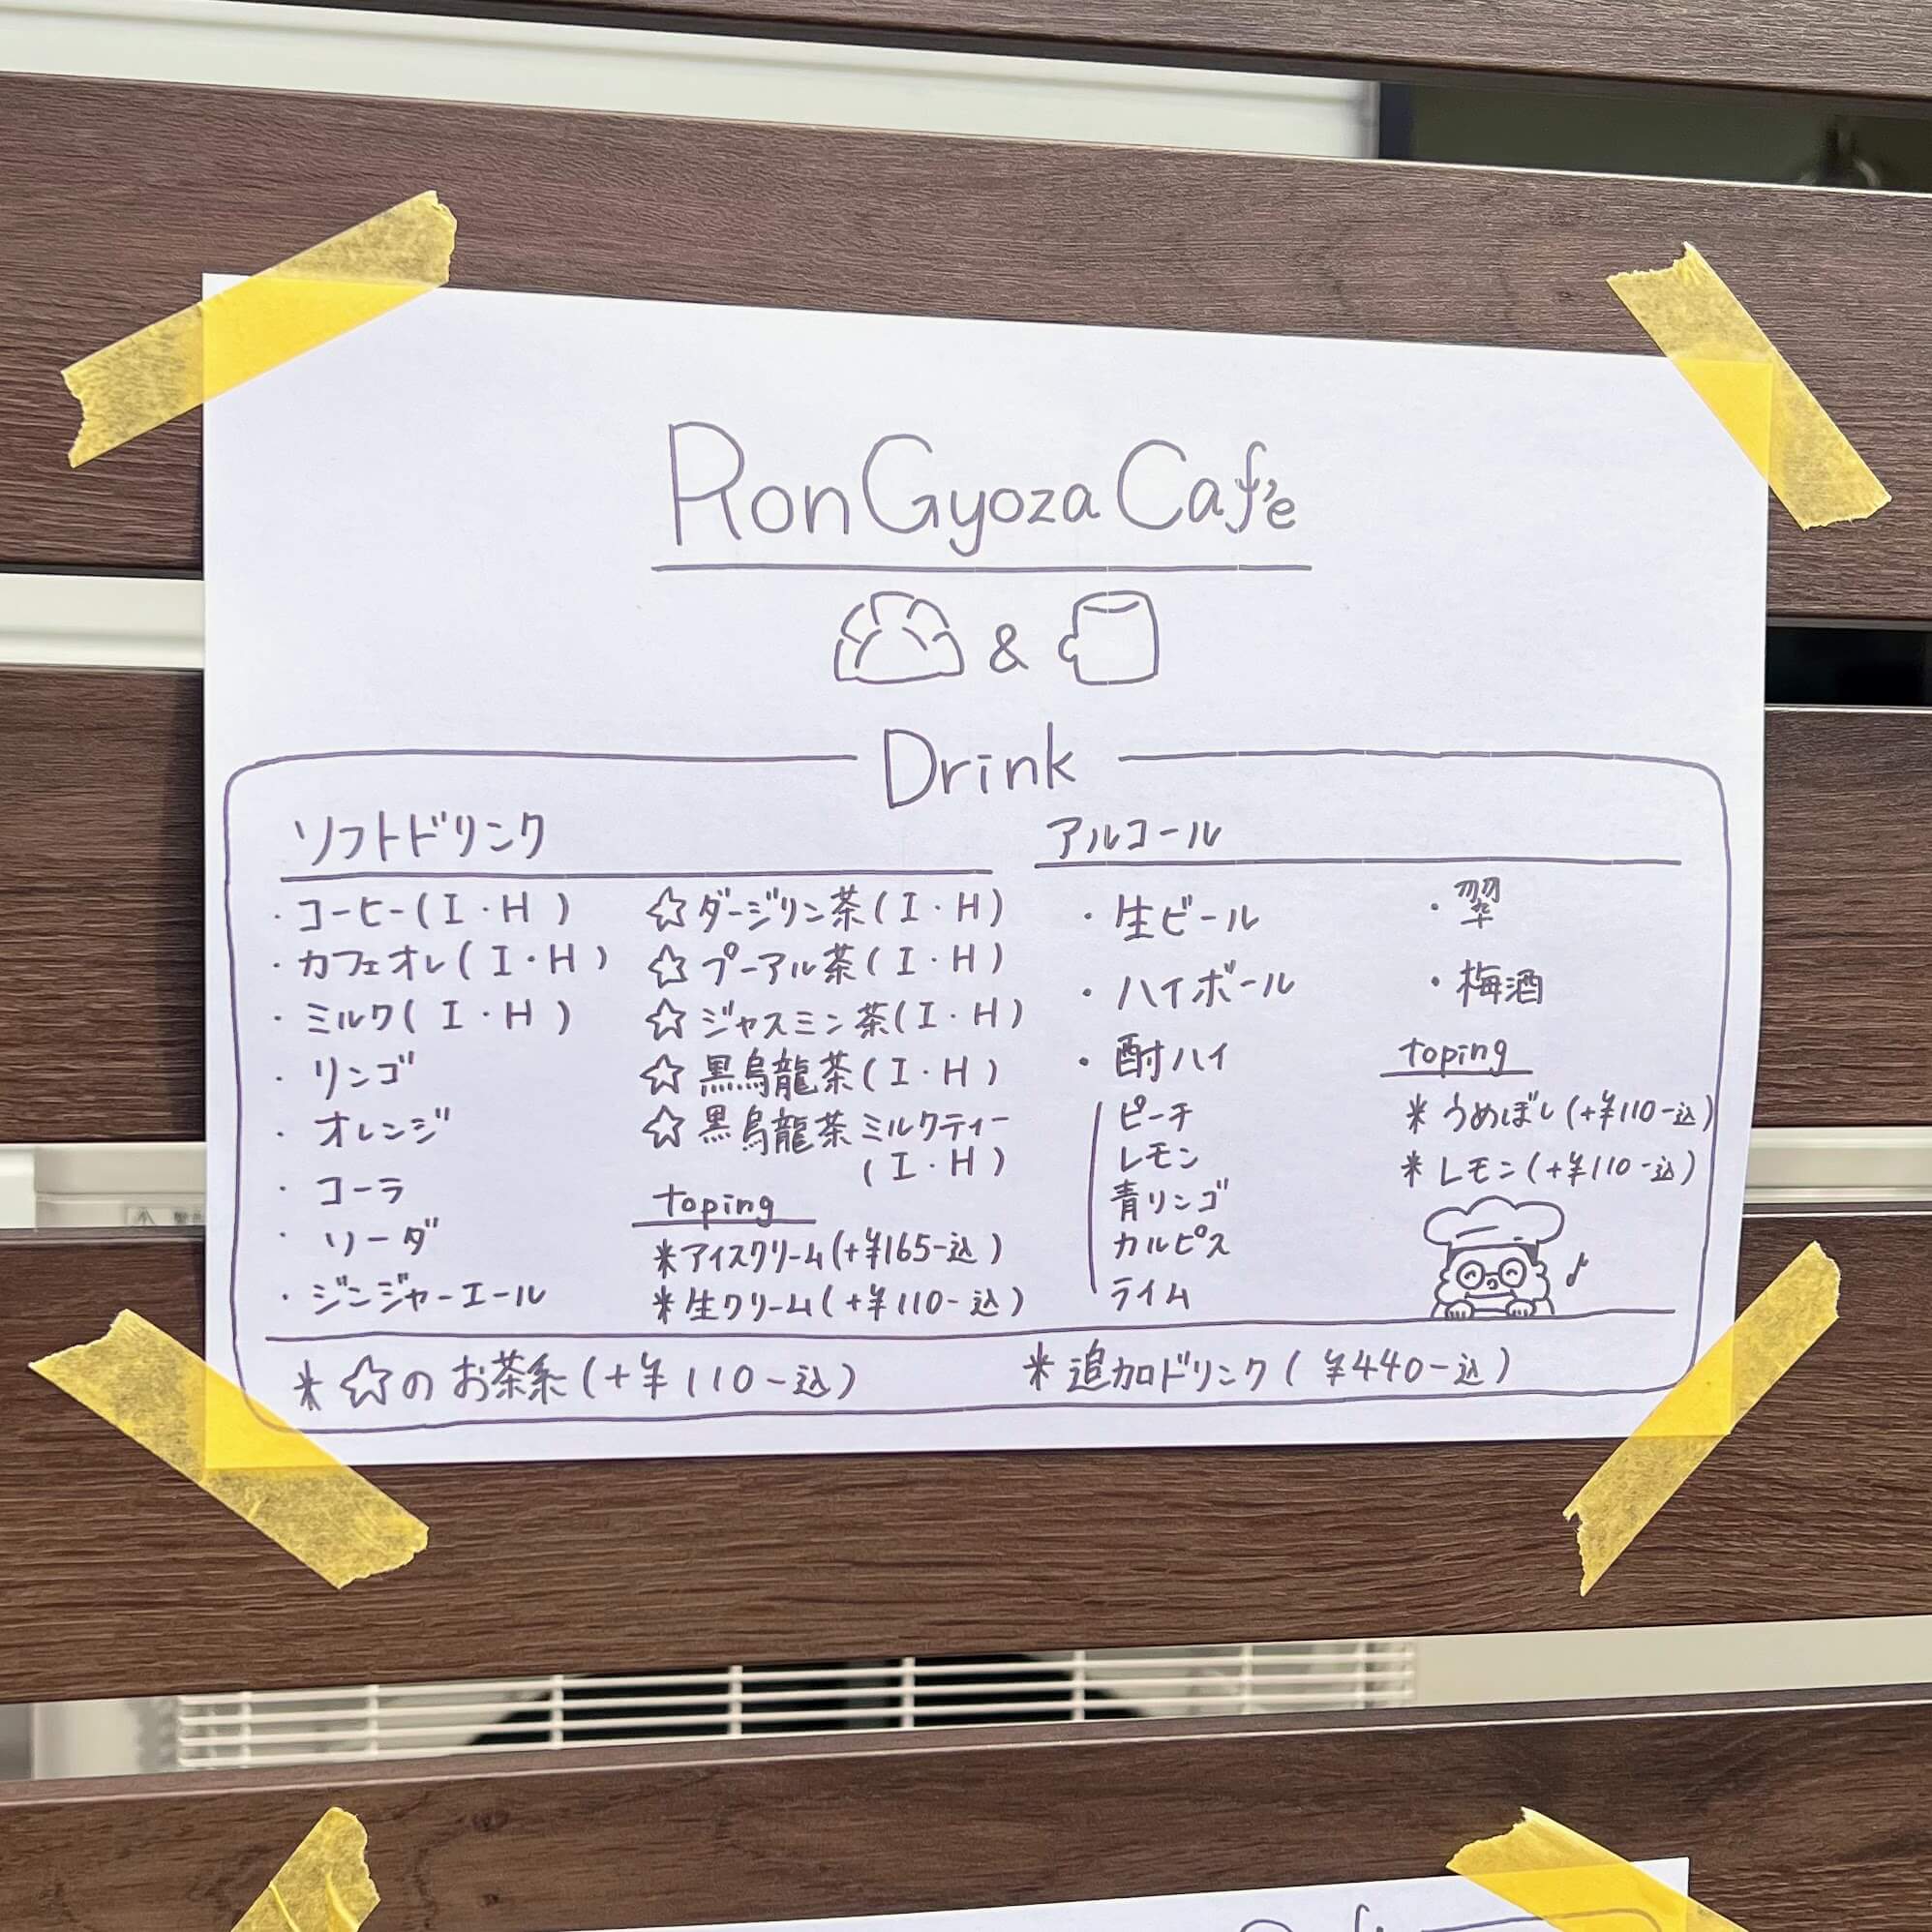 Ron Gyoza Cafe
&
Drink
ソフトドリンク
・コーヒー(I・H)
・カフェオレ(I・H)
・ミルク(I・H)
・リンゴ
・オレンジ
・コーラ
・ソーダ
・ジンジャーエール
☆ダージリン茶(I・H)
☆プーアル茶(I・H)
☆ジャスミン茶(I・H)
☆黒烏龍茶(I・H)
☆黒烏龍茶ミルクティー
(I・H)
toping
*アイスクリーム(+¥165-込)
*生クリーム(+¥110-込)
アルコール
・生ビール
・ハイボール
・酎ハイ
ピーチ
レモン
青リンゴ
カルピス
ライム
・翠
・梅酒
toping
*うめぼし(+¥110-込)
*レモン(+¥110-込)
♪
*☆のお茶系(+¥110-込)
*追加ドリンク(¥440-込)